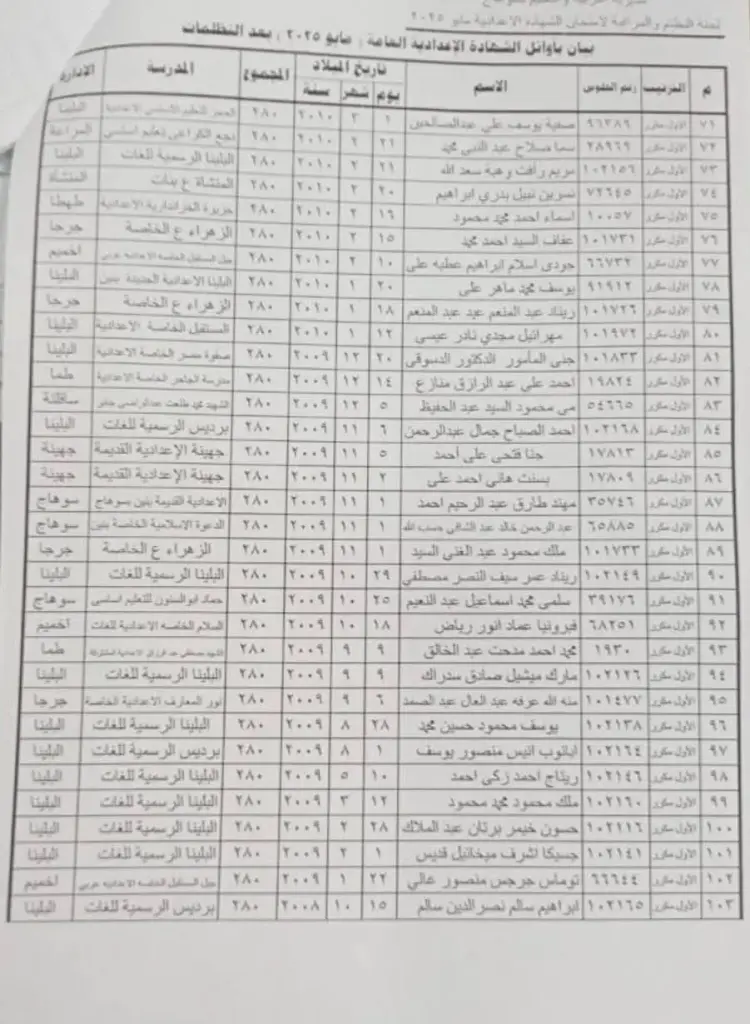 لجنة النظام والمراقبة لامتحان الشهادة الاعدادية مايو ٢٠٢٥
بيان بأوائل الشهادة الإعدادية العامة ( مايو ٢٠٢٥ ) بعد التظلمات
م الترتيب رقم الجلوس الاسم تاريخ الميلاد المجموع المدرسة الادارة
يوم شهر سنة
٧١ الأول مكرر ٩٦٣٨٩ صفية يوسف علي عبدالصالحين ١ ٣ ٢٠١٠ ٢٨٠ للتعليم الاساسى الاعدادية البلينا
٧٢ الأول مكرر ٢٨٩٦٩ سما صلاح عبد النبي محمد ٢١ ٢ ٢٠١٠ ٢٨٠ نجع الكراعى تعليم اساسي المراغة
٧٣ الأول مكرر ١٠٢١٥٦ مريم رأفت وهبة سعد الله ٢١ ٢ ٢٠١٠ ٢٨٠ البلينا الرسمية للغات البلينا
٧٤ الأول مكرر ٧٢٦٤٥ نسرين نبيل بدري ابراهيم ٢٠ ٢ ٢٠١٠ ٢٨٠ المنشاة ع بنات المنشاة
٧٥ الأول مكرر ١٠٠٥٧ اسماء احمد محمد محمود ١٦ ٢ ٢٠١٠ ٢٨٠ جزيرة الخزندارية الاعدادية طهطا
٧٦ الأول مكرر ١٠١٧٣١ عفاف السيد احمد محمد ١٥ ٢ ٢٠١٠ ٢٨٠ الزهراء ع الخاصة جرجا
٧٧ الأول مكرر ٦٦٧٣٢ جودى اسلام ابراهيم عطيه على ١٠ ٢ ٢٠١٠ ٢٨٠ جيل المستقبل الخاصه الاعداديه عربي اخميم
٧٨ الأول مكرر ٩١٩١٢ يوسف محمد ماهر على ٢٠ ١ ٢٠١٠ ٢٨٠ البلينا الاعدادية الحديثة بنين البلينا
٧٩ الأول مكرر ١٠١٧٢٦ ريناد عبد المنعم عيد عبد المنعم ١٨ ١ ٢٠١٠ ٢٨٠ الزهراء ع الخاصة جرجا
٨٠ الأول مكرر ١٠١٩٧٢ مهرائيل مجدي نادر عيسى ١٢ ١ ٢٠١٠ ٢٨٠ المستقبل الخاصة الاعدادية البلينا
٨١ الأول مكرر ١٠١٨٣٣ جنى المأمور الدكتور الدسوقي ٢٠ ١٢ ٢٠٠٩ ٢٨٠ صفوة مصر الخاصة الاعدادية البلينا
٨٢ الأول مكرر ١٩٨٢٤ احمد علي عبد الرازق منازع ١٤ ١٢ ٢٠٠٩ ٢٨٠ مدرسة الخاصة الاعدادية طما
٨٣ الأول مكرر ٥٤٦٦٥ مى محمود السيد عبد الحفيظ ٥ ١٢ ٢٠٠٩ ٢٨٠ الشهيد محمد طلعت عبدالراضى جابر ساقلتة
٨٤ الأول مكرر ١٠٢١٦٨ احمد الصباح جمال عبدالرحمن ٦ ١١ ٢٠٠٩ ٢٨٠ برديس الرسمية للغات البلينا
٨٥ الأول مكرر ١٧٨١٣ جنا فتحى على أحمد ٥ ١١ ٢٠٠٩ ٢٨٠ جهينة الإعدادية القديمة جهينة
٨٦ الأول مكرر ١٧٨٠٩ بسنت هاني احمد على ٢ ١١ ٢٠٠٩ ٢٨٠ جهينة الإعدادية القديمة جهينة
٨٧ الأول مكرر ٣٥٧٤٦ مهند طارق عبد الرحيم احمد ١ ١١ ٢٠٠٩ ٢٨٠ الإعدادية القديمة بنين بسوهاج سوهاج
٨٨ الأول مكرر ٦٥٨٨٥ عبد الرحمن خالد عبد الشافي حسب الله ١ ١١ ٢٠٠٩ ٢٨٠ الدعوة الاسلامية الخاصة بنين سوهاج
٨٩ الأول مكرر ١٠١٧٣٣ ملك محمود عبد الغنى السيد ١ ١١ ٢٠٠٩ ٢٨٠ الزهراء ع الخاصة جرجا
٩٠ الأول مكرر ١٠٢١٤٩ ريناد عمر سيف النصر مصطفي ٢٩ ١٠ ٢٠٠٩ ٢٨٠ البلينا الرسمية للغات البلينا
٩١ الأول مكرر ٣٩١٧٦ سلمى محمد اسماعيل عبد النعيم ٢٥ ١٠ ٢٠٠٩ ٢٨٠ حماد ابوالستون للتعليم اساسى سوهاج
٩٢ الأول مكرر ٦٨٢٥١ فيرونيا عماد انور رياض ١٨ ١٠ ٢٠٠٩ ٢٨٠ السلام الخاصه الاعدادية للغات اخميم
٩٣ الأول مكرر ١٩٣٠ محمد احمد مدحت عبد الخالق ٩ ٩ ٢٠٠٩ ٢٨٠ الشهيد مصطفى عبد الرازق الاعدادية المشتركة طما
٩٤ الأول مكرر ١٠٢١٢٦ مارك ميشيل صادق سدراك ٩ ٩ ٢٠٠٩ ٢٨٠ البلينا الرسمية للغات البلينا
٩٥ الأول مكرر ١٠١٤٧٧ منه الله عرفه عبد العال عبد الصمد ٦ ٩ ٢٠٠٩ ٢٨٠ نور المعارف الاعدادية الخاصة جرجا
٩٦ الأول مكرر ١٠٢١٣٨ يوسف محمود حسين محمد ٢٨ ٨ ٢٠٠٩ ٢٨٠ البلينا الرسمية للغات البلينا
٩٧ الأول مكرر ١٠٢١٦٤ ابانوب انيس منصور يوسف ١ ٨ ٢٠٠٩ ٢٨٠ برديس الرسمية للغات البلينا
٩٨ الأول مكرر ١٠٢١٤٦ ريتاج احمد زكى احمد ١٠ ٥ ٢٠٠٩ ٢٨٠ البلينا الرسمية للغات البلينا
٩٩ الأول مكرر ١٠٢١٦٠ ملك محمود محمد محمود ١٢ ٣ ٢٠٠٩ ٢٨٠ البلينا الرسمية للغات البلينا
١٠٠ الأول مكرر ١٠٢١١٦ حسون خيمر برتان عبد الملاك ٢٨ ٢ ٢٠٠٩ ٢٨٠ البلينا الرسمية للغات البلينا
١٠١ الأول مكرر ١٠٢١٤١ جسيكا اشرف ميخائيل قديس ١ ٢ ٢٠٠٩ ٢٨٠ البلينا الرسمية للغات البلينا
١٠٢ الأول مكرر ٦٦٦٤٤ توماس جرجس منصور غالي ٢٢ ١ ٢٠٠٩ ٢٨٠ جيل المستقبل الخاصه الاعداديه عربي اخميم
١٠٣ الأول مكرر ١٠٢١٦٥ ابراهيم سالم نصر الدين سالم ١٥ ١٠ ٢٠٠٨ ٢٨٠ برديس الرسمية للغات البلينا